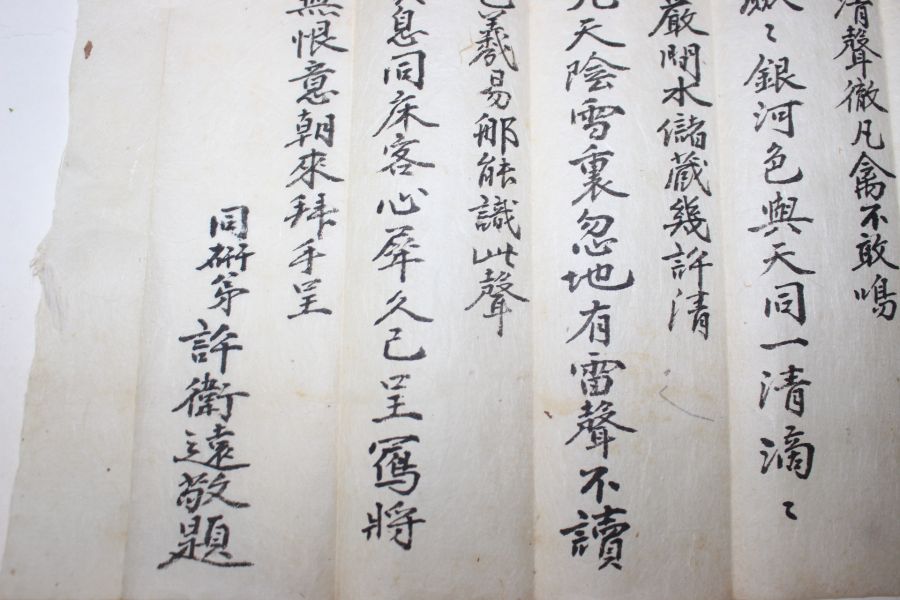 清聲徹凡禽不敢鳴
〻銀河色與天同一清滴〻
嚴閒水儲藏幾許清
天陰雪裏忽地有雷聲不讀
羲易那能識此聲
息同床客心犀久已呈寫將
無恨意朝來拜手呈
同硏弟許衛遠敬題